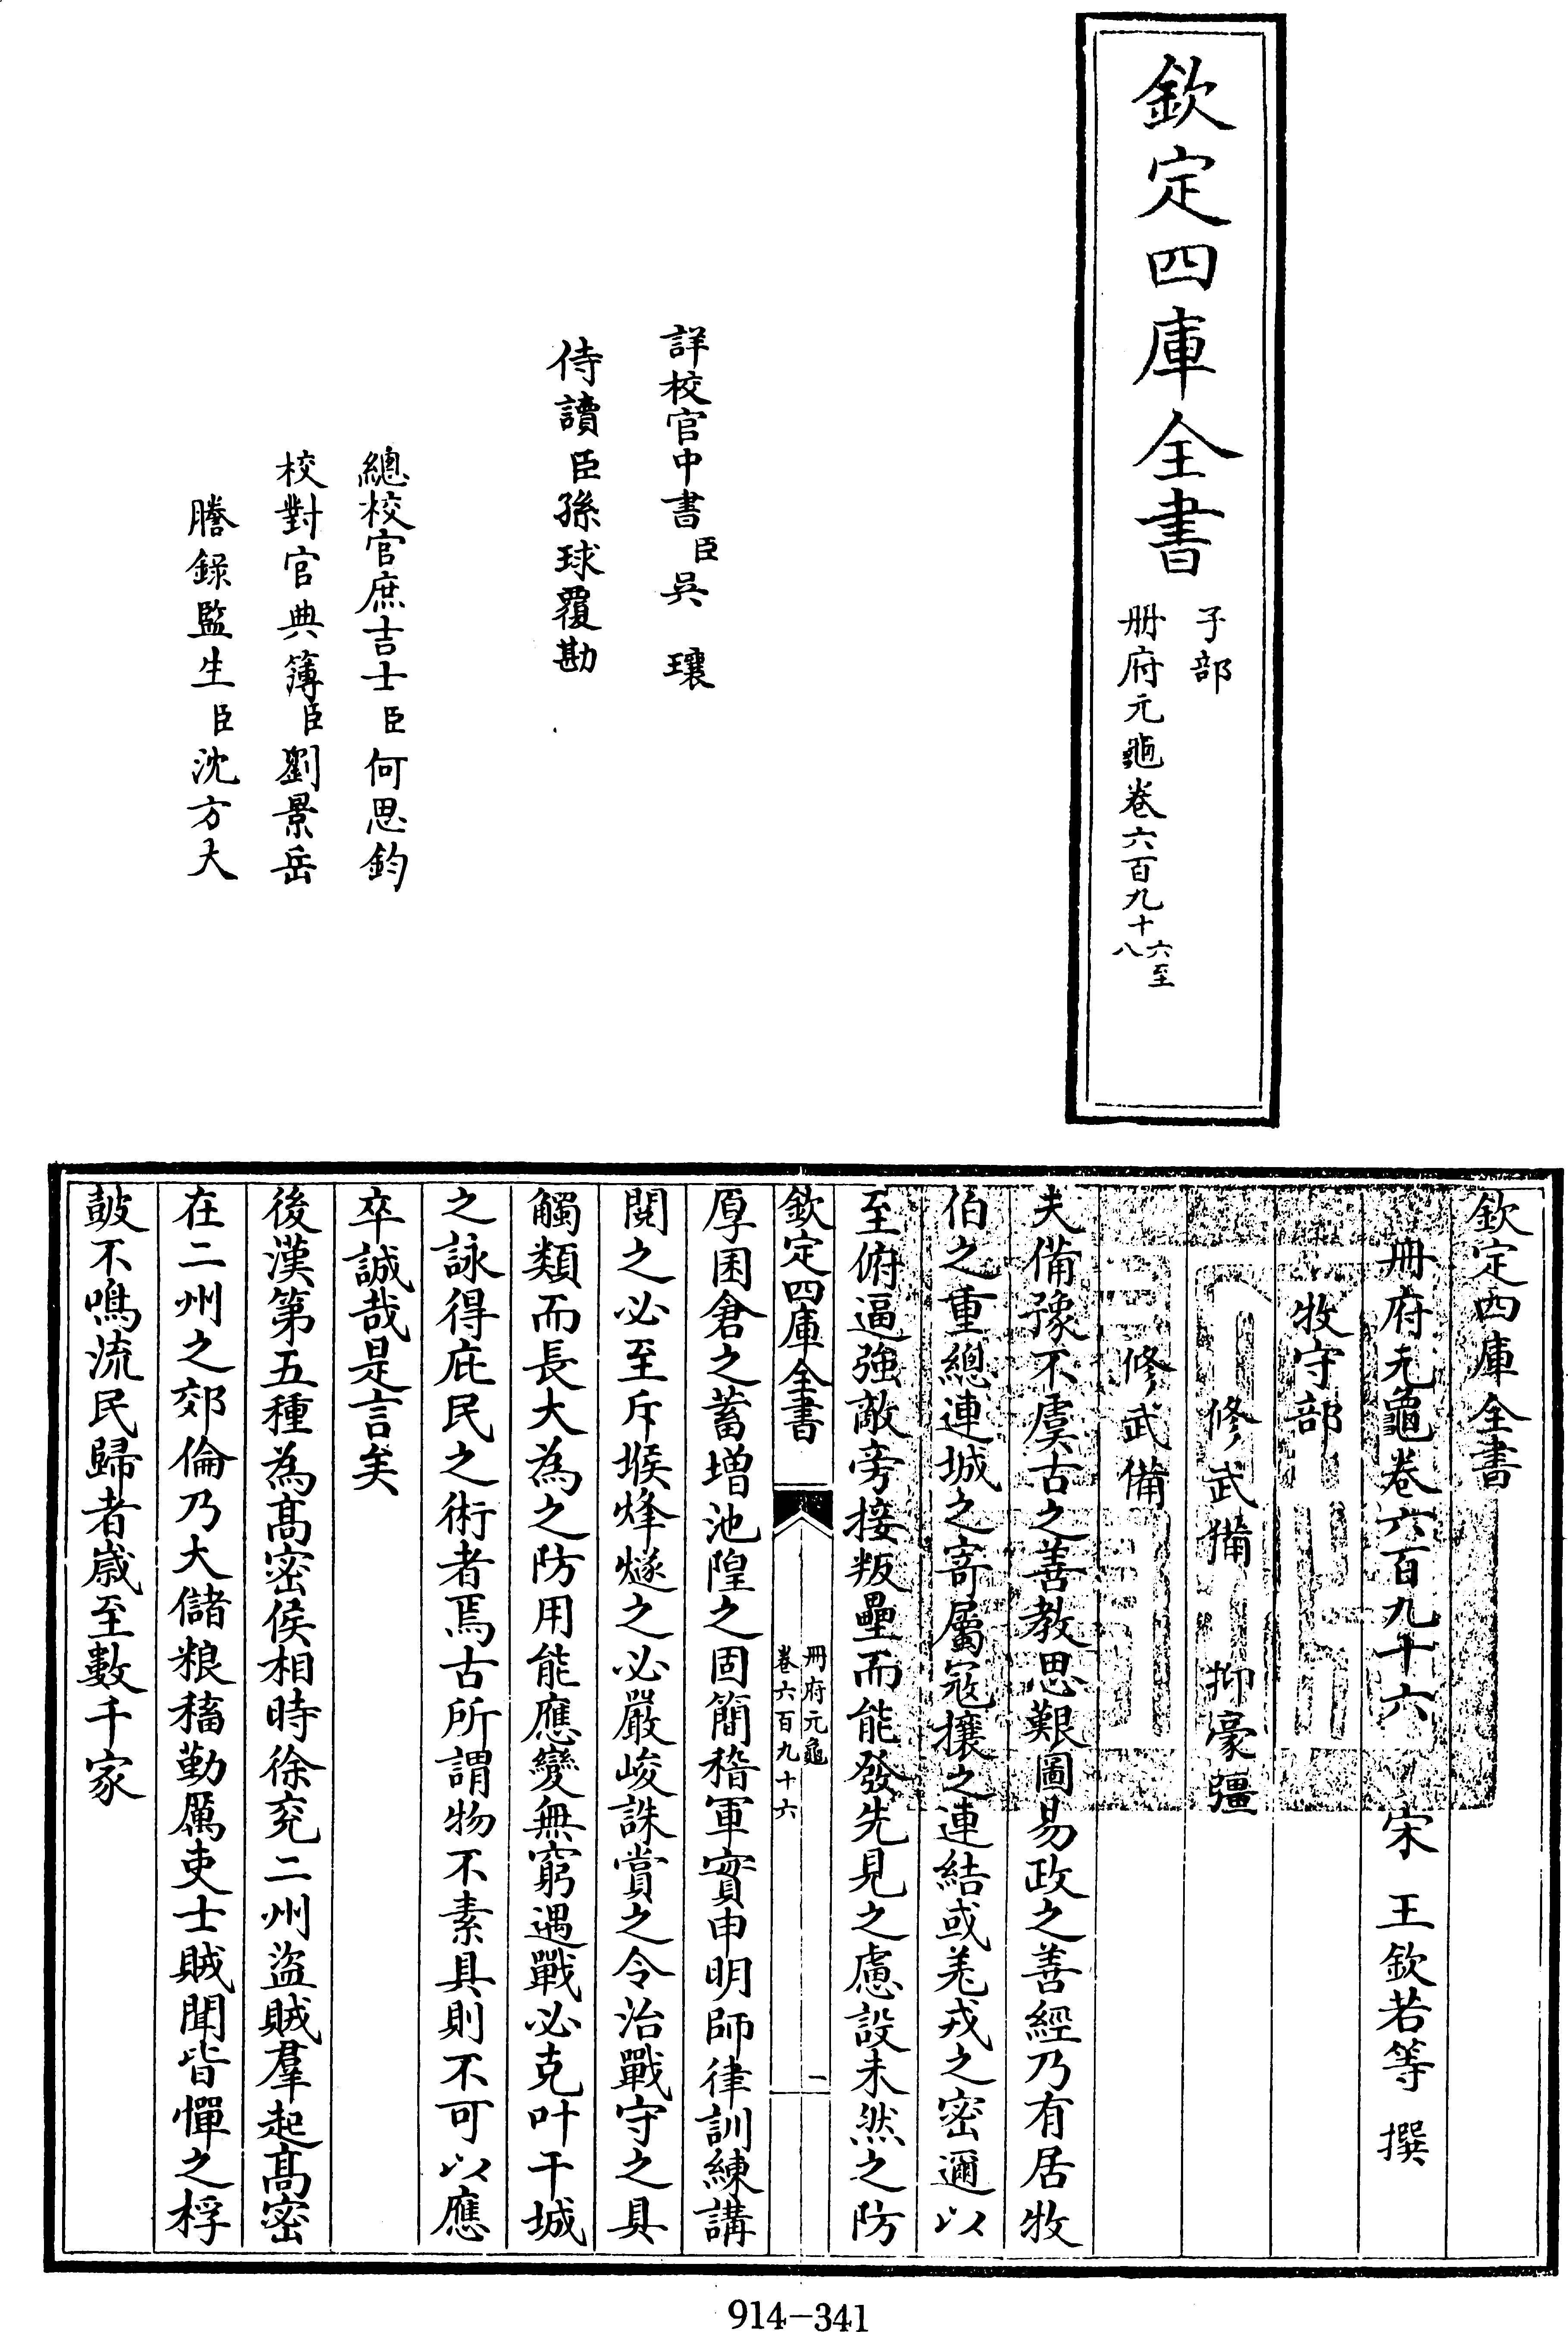 欽定四庫全書
子部
冊府元龜卷六百九十六至八
詳校官中書臣吳瓖
侍讀臣孫球覆勘
總校官庶吉士臣何思鈞
校對官典簿臣劉景岳
謄錄監生臣沈方大
欽定四庫全書
冊府元龜卷六百九十六 宋 王欽若等 撰
牧守部
修武備 抑豪彊
修武備
夫備豫不虞古之善教思艱圖易政之善經乃有居牧
伯之重總連城之寄屬寇攘之連結或羌戎之密邇以
至俯逼強敵旁接叛壘而能發先見之慮設未然之防
欽定四庫全書
冊府元龜
卷六百九十六
一
厚囷倉之蓄增池隍之固簡稽軍實申明師律訓練講
閱之必至斥堠烽燧之必嚴峻誅賞之令治戰守之具
觸類而長大為之防用能應變無窮遇戰必克叶干城
之詠得庇民之術者焉古所謂物不素具則不可以應
卒誠哉是言矣
後漢第五種為高密侯相時徐兗二州盜賊羣起高密
在二州之郊倫乃大儲粮穡勤厲吏士賊聞皆憚之桴
鼓不鳴流民歸者歲至數千家
914-341